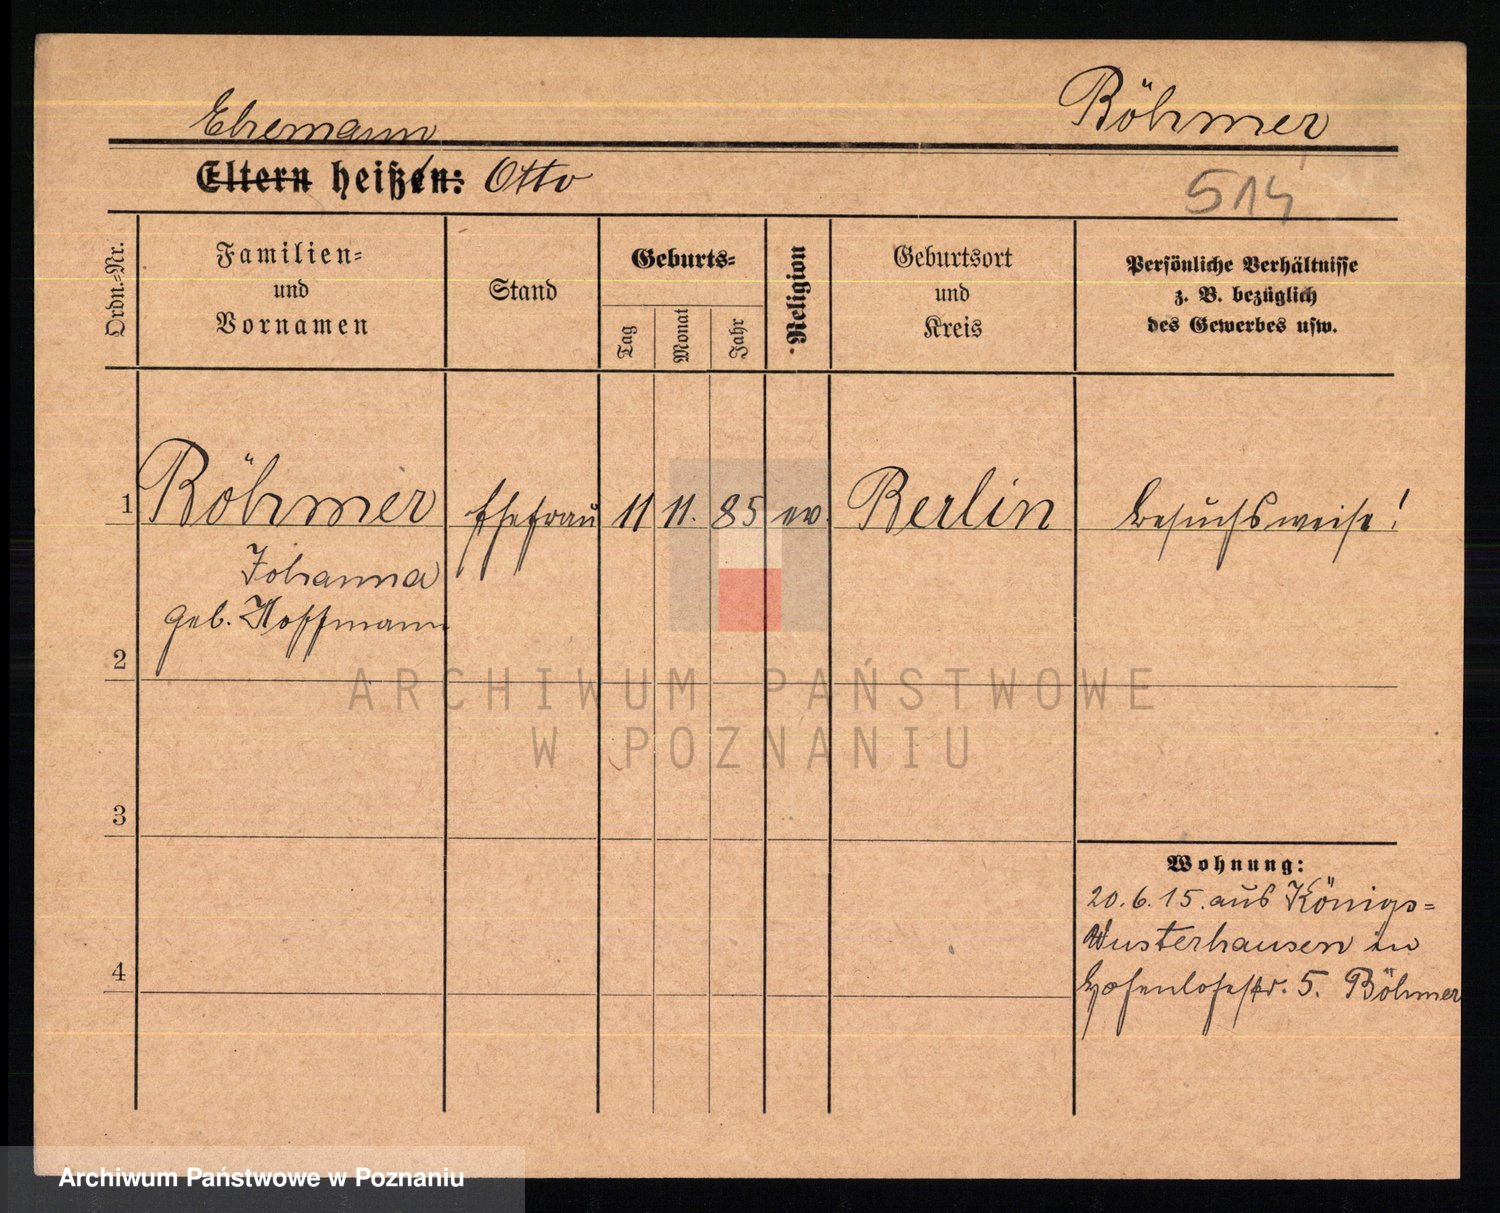 Ehemann
Böhmer
Eltern heißen: Otto
514
Ordn.-Nr.
Familien-
und
Vornamen
Stand
Geburts-
Tag
Monat
Jahr
Religion
Geburtsort
und
Kreis
Persönliche Verhältnisse
z. B. bezüglich
des Gewerbes usw.
1 Böhmer Ehefrau 11 11. 85 ev. Berlin besuchsweise!
Johanna
geb. Hoffmann
2
ARCHIWUM PAŃSTWOWE
W POZNANIU
3
Wohnung:
20.6.15. aus Königs-
Wusterhausen in
4
Hohenlohestr. 5. Böhmer
Archiwum Państwowe w Poznaniu